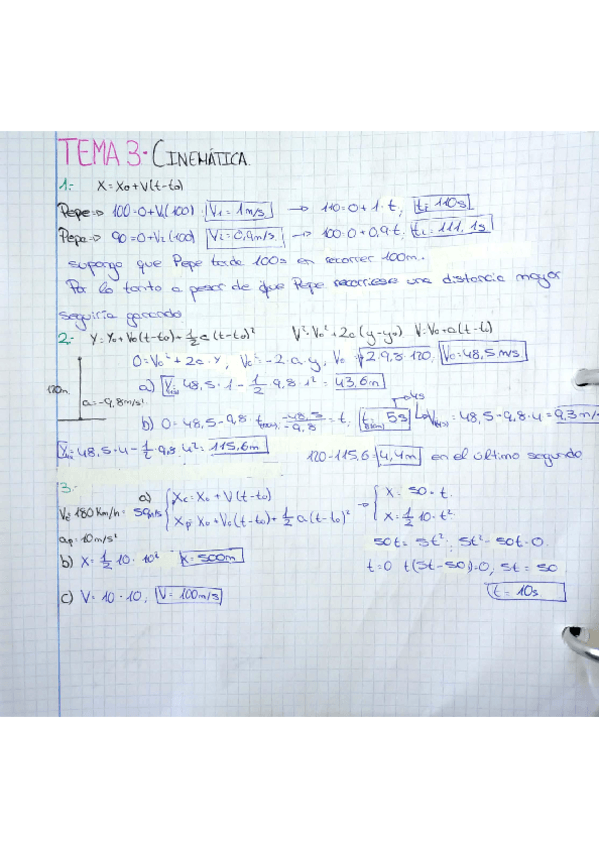 TEMA 3- CINEMÁTICA.
1- X = X0 + V(t-t0)
Pepe => 100 = 0 + V1(100) V1 = 1 m/s → 110 = 0 + 1·t, t1 = 110s
=> 90 = 0 + V2(100) V2 = 0,9 m/s → 100 = 0 + 0,9·t, t2 = 111,1s
supongo que Pepe tarda 100s en recorrer 100m.
Por lo tanto a pesar de que Pepe recorriese una distancia mayor
seguiría ganando
2- Y = Y0 + V0(t-t0) + 1/2 a (t-t0)² V² = V0² + 2a (y-y0) V = V0 + a(t-t0)
0 = V0² + 2a·Y, V0² = -2·a·y, V0 = √2·9,8·120, V0 = 48,5 m/s
120m
a = -9,8m/s²
a) = 48,5·1 - 1/2 9,8·1² = 43,6m
b) 0 = 48,5 - 9,8·t, -48,5/-9,8 = t, 5s
4s
= 48,5 - 9,8·4 = 9,3 m/
= 48,5·4 - 1/2 9,8·4² = 115,6m
120 - 115,6 = 4,4m en el último segundo
3-
a) Xc = X0 + V(t-t0) → X = 50·t
Vc = 180 Km/h = 50m/s
Xp = X0 + V0(t-t0) + 1/2 a(t-t0)² X = 1/2 10·t²
ap = 10m/s²
50t = 5t²; 5t² - 50t = 0
b) X = 1/2 10·10² X = 500m
t = 0 t(5t-50) = 0, 5t = 50
t = 10s
c) V = 10·10, V = 100m/s